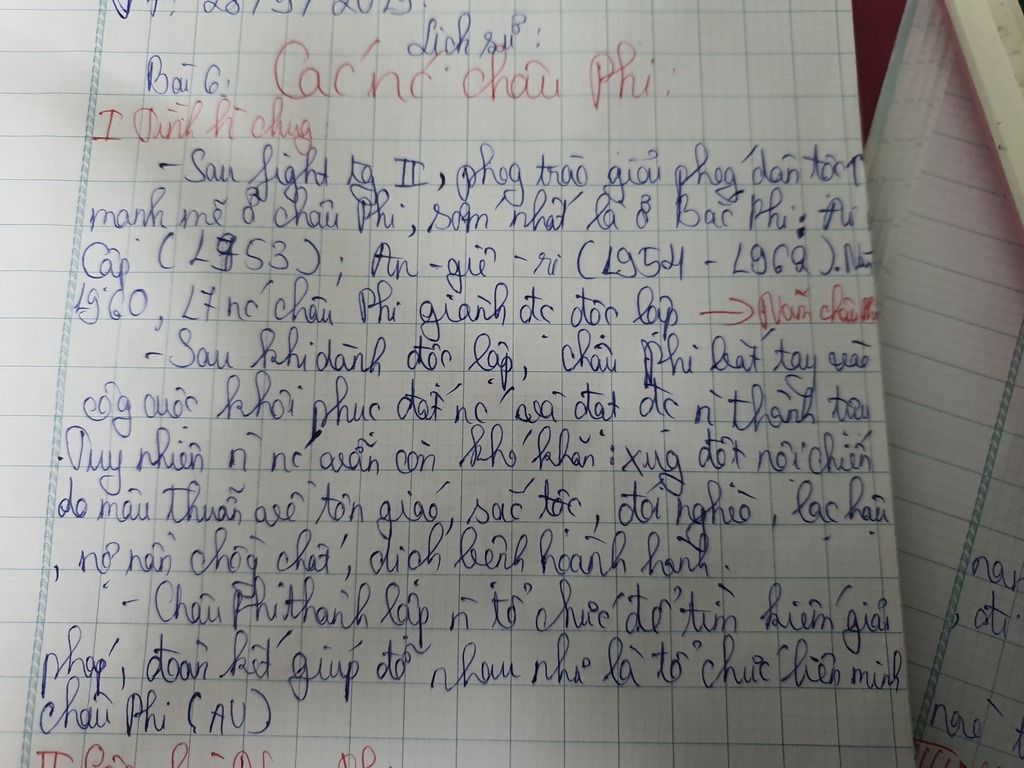 T7, 28/9/2019.
Lịch sử:
Bài 6: Các nc châu Phi:
I Tình hì chug
- Sau fight tg II, phog trào giải phog dân tộc ↑
mạnh mẽ ở châu Phi, sớm nhất là ở Bắc Phi: Ai
Cập (1953); An-giê-ri (1954 - 1962). Năm
1960, 17 nc châu Phi giành đc độc lập → Năm châu Phi
- Sau khi dành độc lập, châu Phi bắt tay vào
côg cuộc khôi phục đất nc và đạt đc n̄ thành tựu
. Tuy nhiên n̄ nc vẫn còn khó khăn: xug đột nội chiến
do mâu thuẫn về tôn giáo, sắc tộc, đói nghèo, lạc hậu
, nợ nần chồg chất, dịch bệnh hoành hành.
- Châu Phi thành lập n̄ tổ chức để tìm kiếm giải
pháp, đoàn kết giúp đỡ nhau như là tổ chức liên minh
châu Phi (AU)